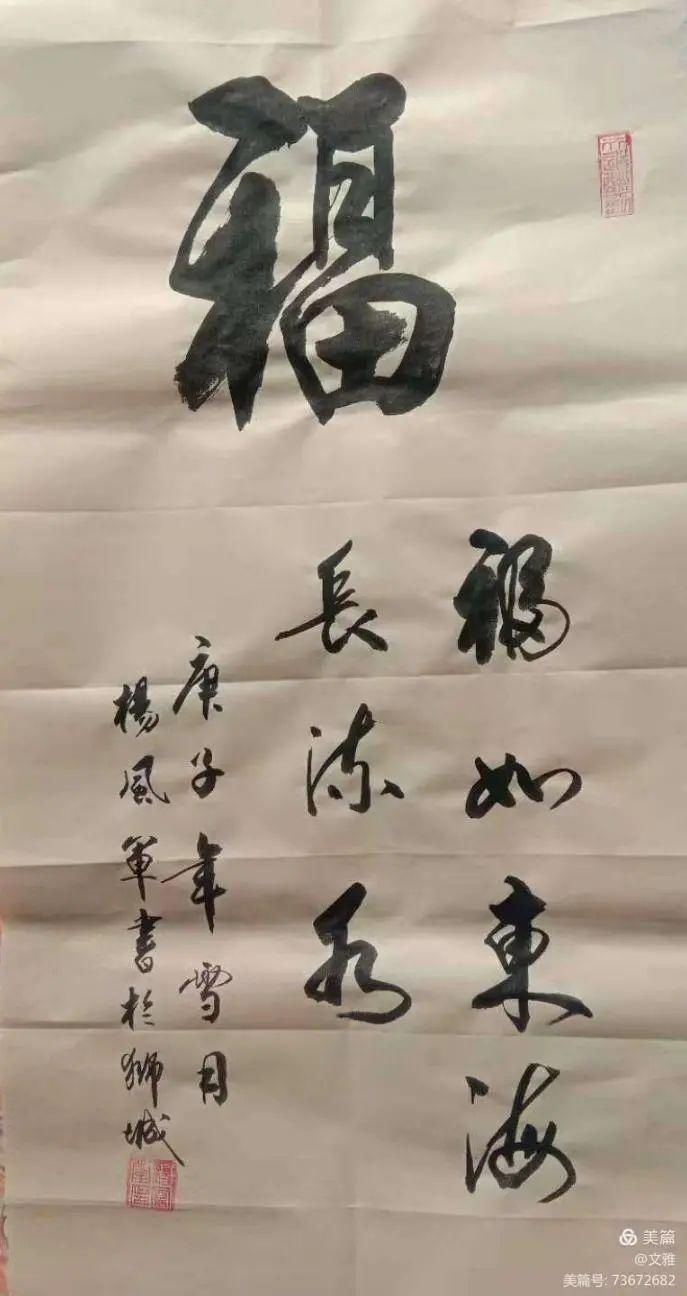 福
福如東海
長流水
庚子年雪月
楊風軍書於獅城
美篇
@文雅
美篇号: 73672682